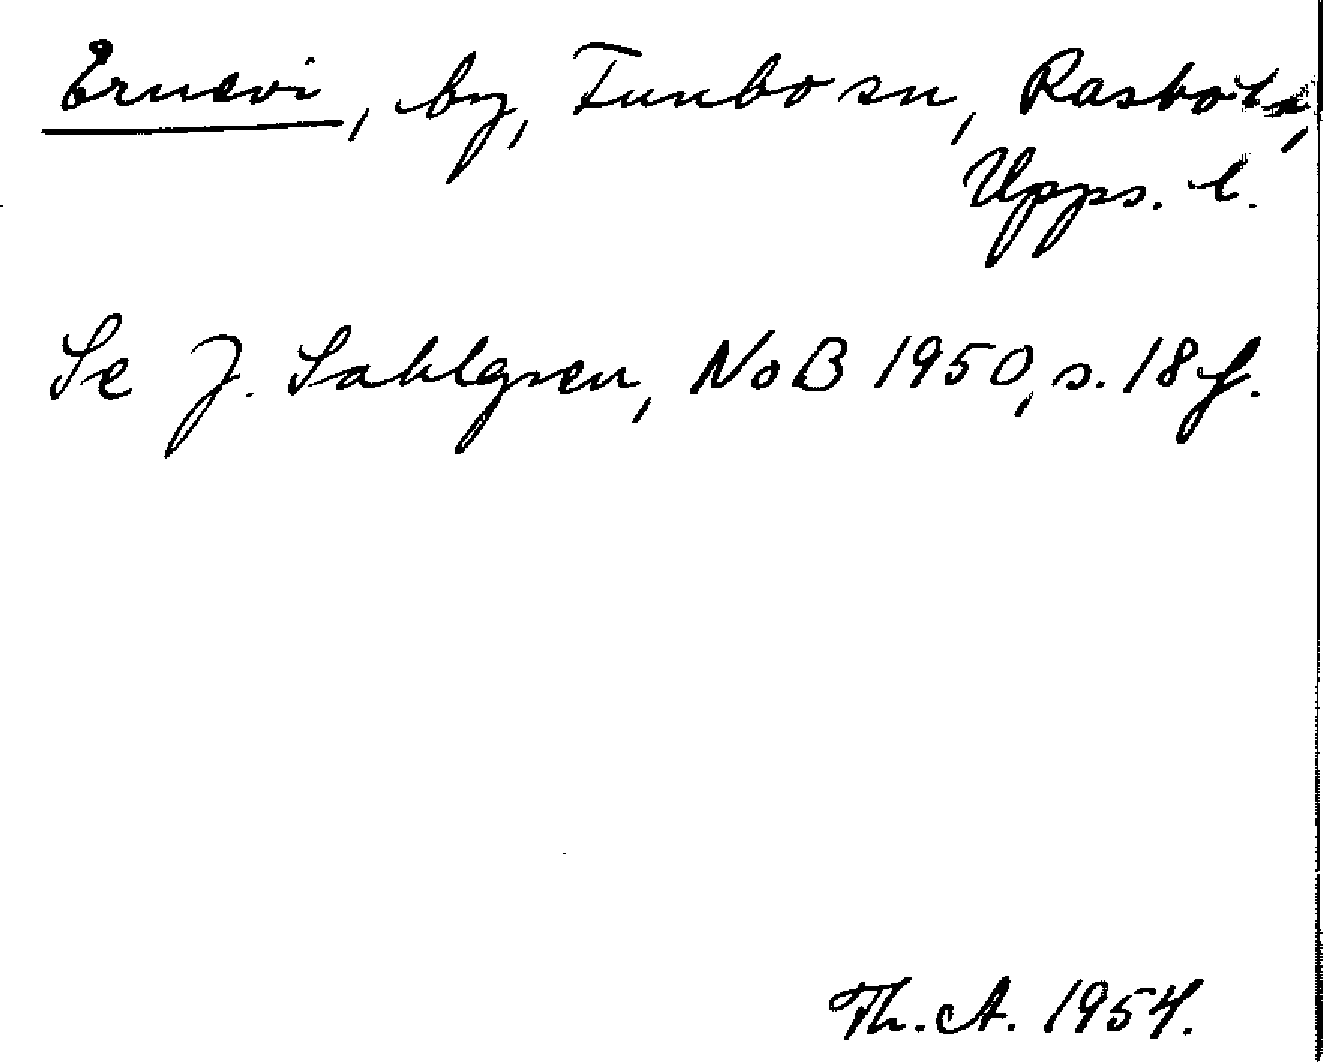 Ernevi, by, Tunbo sn, Rasbo hd,
Upps. l.
Se J. Sahlgren, NoB 1950, s. 18 f.
Th. A. 1954.